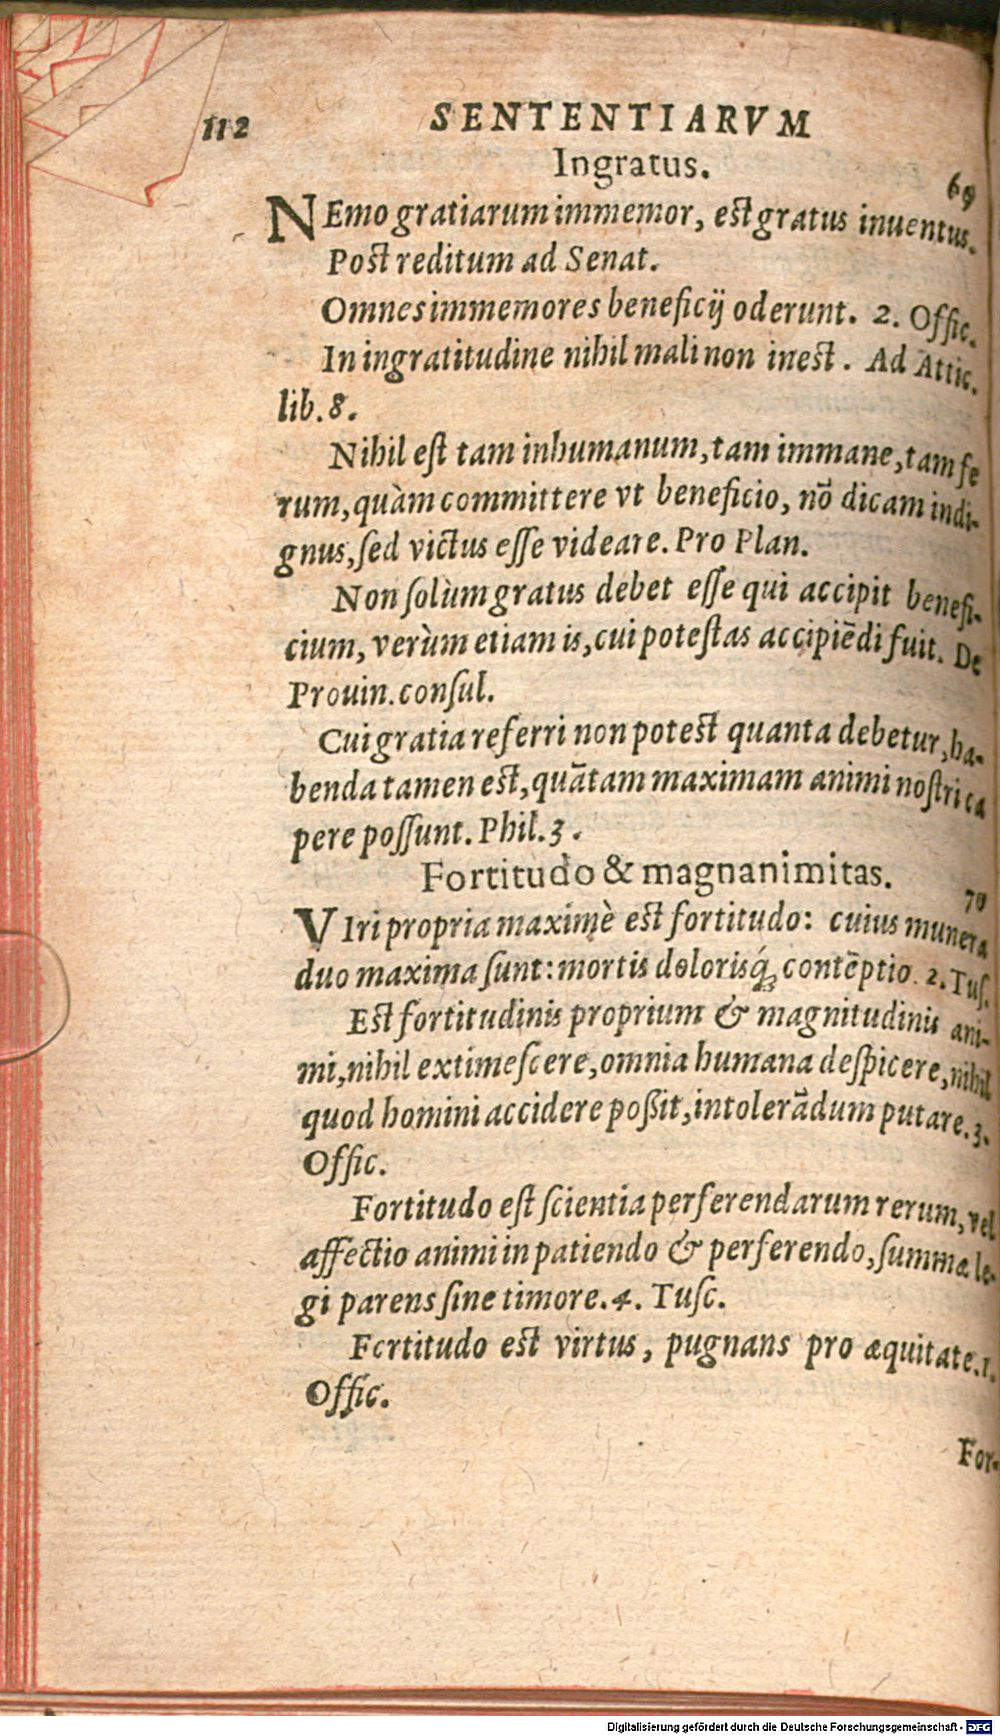 112 SENTENTIARVM
Ingratus. 69
NEmo gratiarum immemor, est gratus inuentus.
Post reditum ad Senat.
Omnes immemores beneficij oderunt. 2. Offic.
In ingratitudine nihil mali non inest. Ad Attic.
lib. 8.
Nihil eſt tam inhumanum, tam immane, tam fe
rum, quàm committere vt beneficio, nō dicam indi-
gnus, ſed victus eſſe videare. Pro Plan.
Non ſolùm gratus debet eſſe qui accipit benefi-
cium, verùm etiam is, cui poteſtas accipiēdi fuit. De
Prouin. conſul.
Cui gratia referri non potest quanta debetur, ha-
benda tamen est, quātam maximam animi noſtri ca
pere poſſunt. Phil. 3.
Fortitudo & magnanimitas. 70
VIri propria maximè est fortitudo: cuius munera
duo maxima ſunt: mortis dolorisq́; contēptio. 2. Tuſ.
Est fortitudinis proprium & magnitudinis ani-
mi, nihil extimeſcere, omnia humana deſpicere, nihil
quod homini accidere poßit, intolerādum putare. 3.
Offic.
Fortitudo eſt ſcientia perferendarum rerum, vel
affectio animi in patiendo & perferendo, ſummæ le-
gi parens ſine timore. 4. Tuſc.
Fortitudo est virtus, pugnans pro æquitate. 1.
Offic.
For-
Digitalisierung gefördert durch die Deutsche Forschungsgemeinschaft - DFG